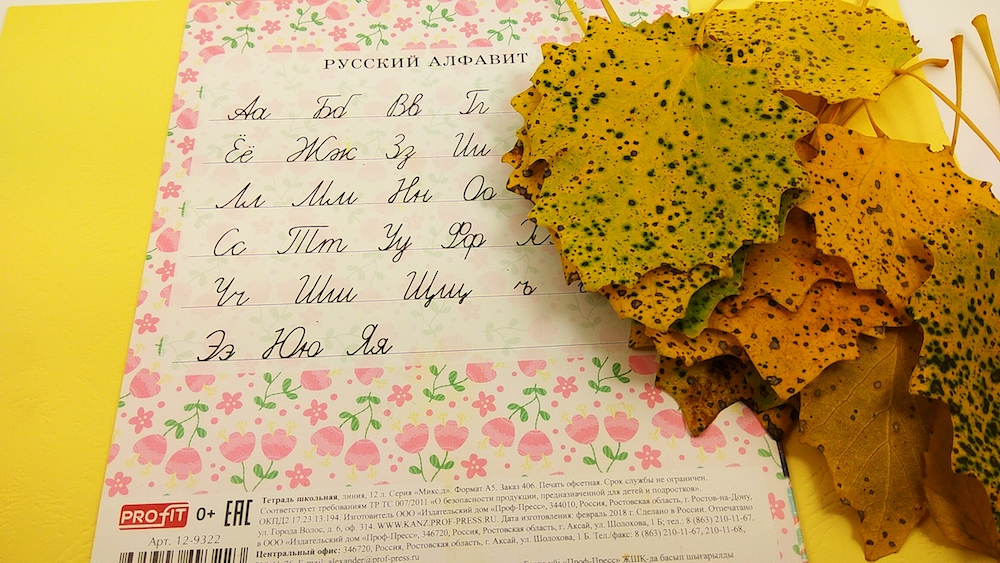 РУССКИЙ АЛФАВИТ
Аа Бб Вв Гг
Ёё Жж Зз Ии
Лл Мм Нн Оо
Сс Тт Уу Фф Хх
Чч Шш Щщ ъ
Ээ Юю Яя
Тетрадь школьная, линия, 12 л. Серия «Микс.д». Формат А5. Заказ 406. Печать офсетная. Срок службы не ограничен.
Соответствует требованиям ТР ТС 007/2011 «О безопасности продукции, предназначенной для детей и подростков».
ОКПД2 17.23.13.194. Изготовитель ООО «Издательский дом «Проф-Пресс», 344010, Россия, Ростовская область, г. Ростов-на-Дону,
ул. Города Волос, д. 6, оф. 314. WWW.KANZ.PROF-PRESS.RU. Дата изготовления: февраль 2018 г. Сделано в России. Отпечатано
в ООО «Издательский дом «Проф-Пресс», 346720, Россия, Ростовская область, г. Аксай, ул. Шолохова, 1 Б, тел.: 8 (863) 210-11-67.
Центральный офис: 346720, Россия, Ростовская область, г. Аксай, ул. Шолохова, 1 Б. Тел./факс: 8 (863) 210-11-67, 210-11-68,
210-11-76. E-mail: alexander@prof-press.ru
«Проф-Пресс» ЖШК-да басып шығарылды
PROFIT 0+ EAC
Арт. 12-9322